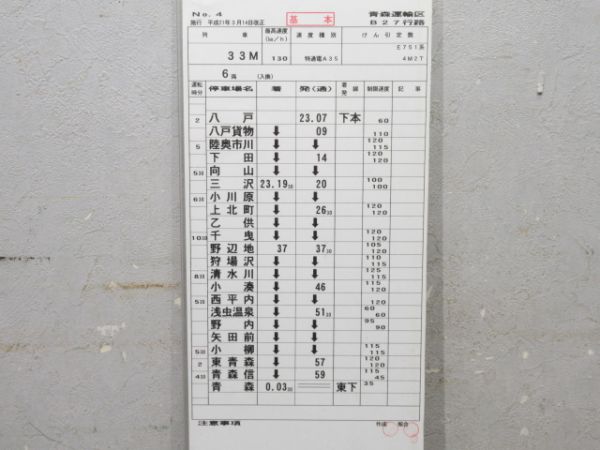 No. 4 基本 青森運輸区
施行 平成21年3月14日改正 B27行路
列車 最高速度(km/h) 速度種別 けん引定数
E751系
33M 130 特通電A35 4M2T
6両 (入換)
運転時分 停車場名 着 発(通) 着発線 制限速度 記事
2 八戸 23.07 下本 60
八戸貨物 ↓ 09 110
5 陸奥市川 ↓ ↓ 120 115
下田 ↓ 14 120 120
5 向山 ↓ ↓
三沢 23.19 20 100 100
6 小川原 ↓ ↓
上北町 ↓ 26 120 120
乙供 ↓ ↓
10 千曳 ↓ ↓ 120 120
野辺地 37 37 105 120
狩場沢 ↓ ↓ 110 115
8 清水川 ↓ ↓ 125 115
小湊 ↓ 46 115 120
5 西平内 ↓ ↓ 120
浅虫温泉 ↓ 51 60 60
野内 ↓ ↓ 95 90
矢田前 ↓ ↓
5 小柳 ↓ ↓ 115 115
2 東青森 ↓ 57 120 120
4 青森信 ↓ 59 115 45
青森 0.03 東下 35
注意事項 作成 照合